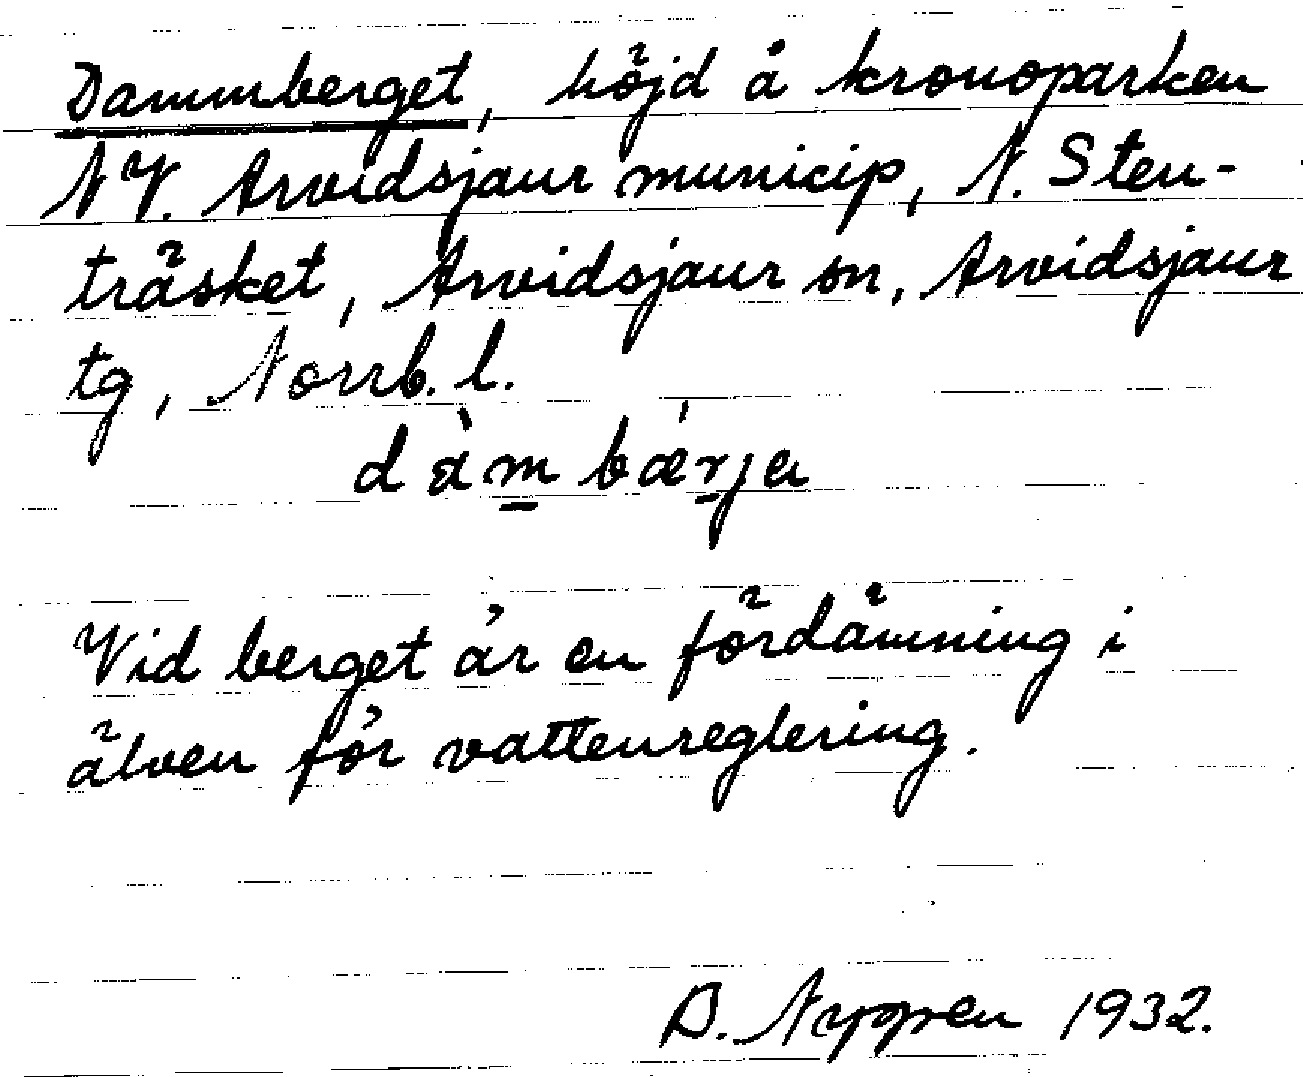 Dammberget, höjd å kronoparken
NV. Arvidsjaur municip, N. Sten-
träsket, Arvidsjaur sn, Arvidsjaur
tg, Norrb. l.
dàm bǽrja
Vid berget är en fördämning i
älven för vattenreglering.
B. Nygren 1932.